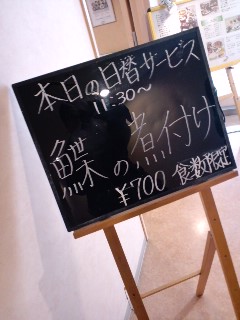 本日の日替サービス
11:30～
鰈の煮付け
¥700 食数限定